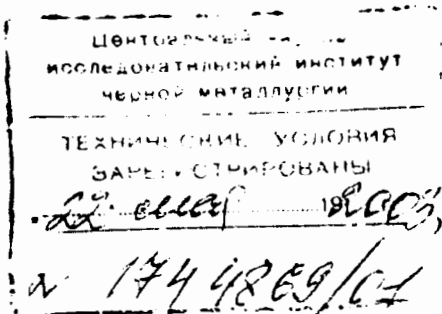 Центральный
исследовательский институт
черной металлургии
ТЕХНИЧЕСКИЕ УСЛОВИЯ
ЗАРЕГИСТРИРОВАНЫ
"22" мая 192003
№ 1744869/01